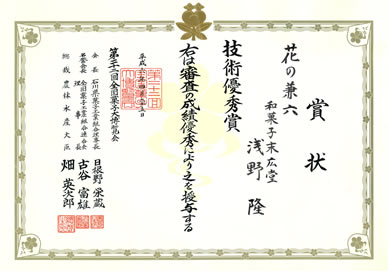 賞状
花の兼六
和菓子末広堂
浅野 隆
技術優秀賞
右は審査の成績優秀により之を授与する
第二十二回全国菓子大博覧会
会長 石川県菓子工業組合理事長 日根野 栄蔵
古谷 富雄
総裁 農林水産大臣 畑 英次郎